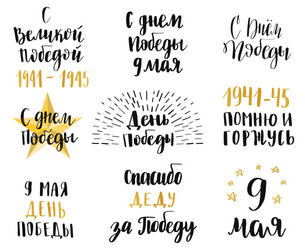 С
Великой
Победой
1941 - 1945
С днем
Победы
9 мая
С Днём
Победы
С днем
Победы
День
Победы
1941-45
ПОМНЮ И
ГОРЖУСЬ
9 МАЯ
ДЕНЬ
ПОБЕДЫ
Спасибо
ДЕДУ
за Победу
9
мая